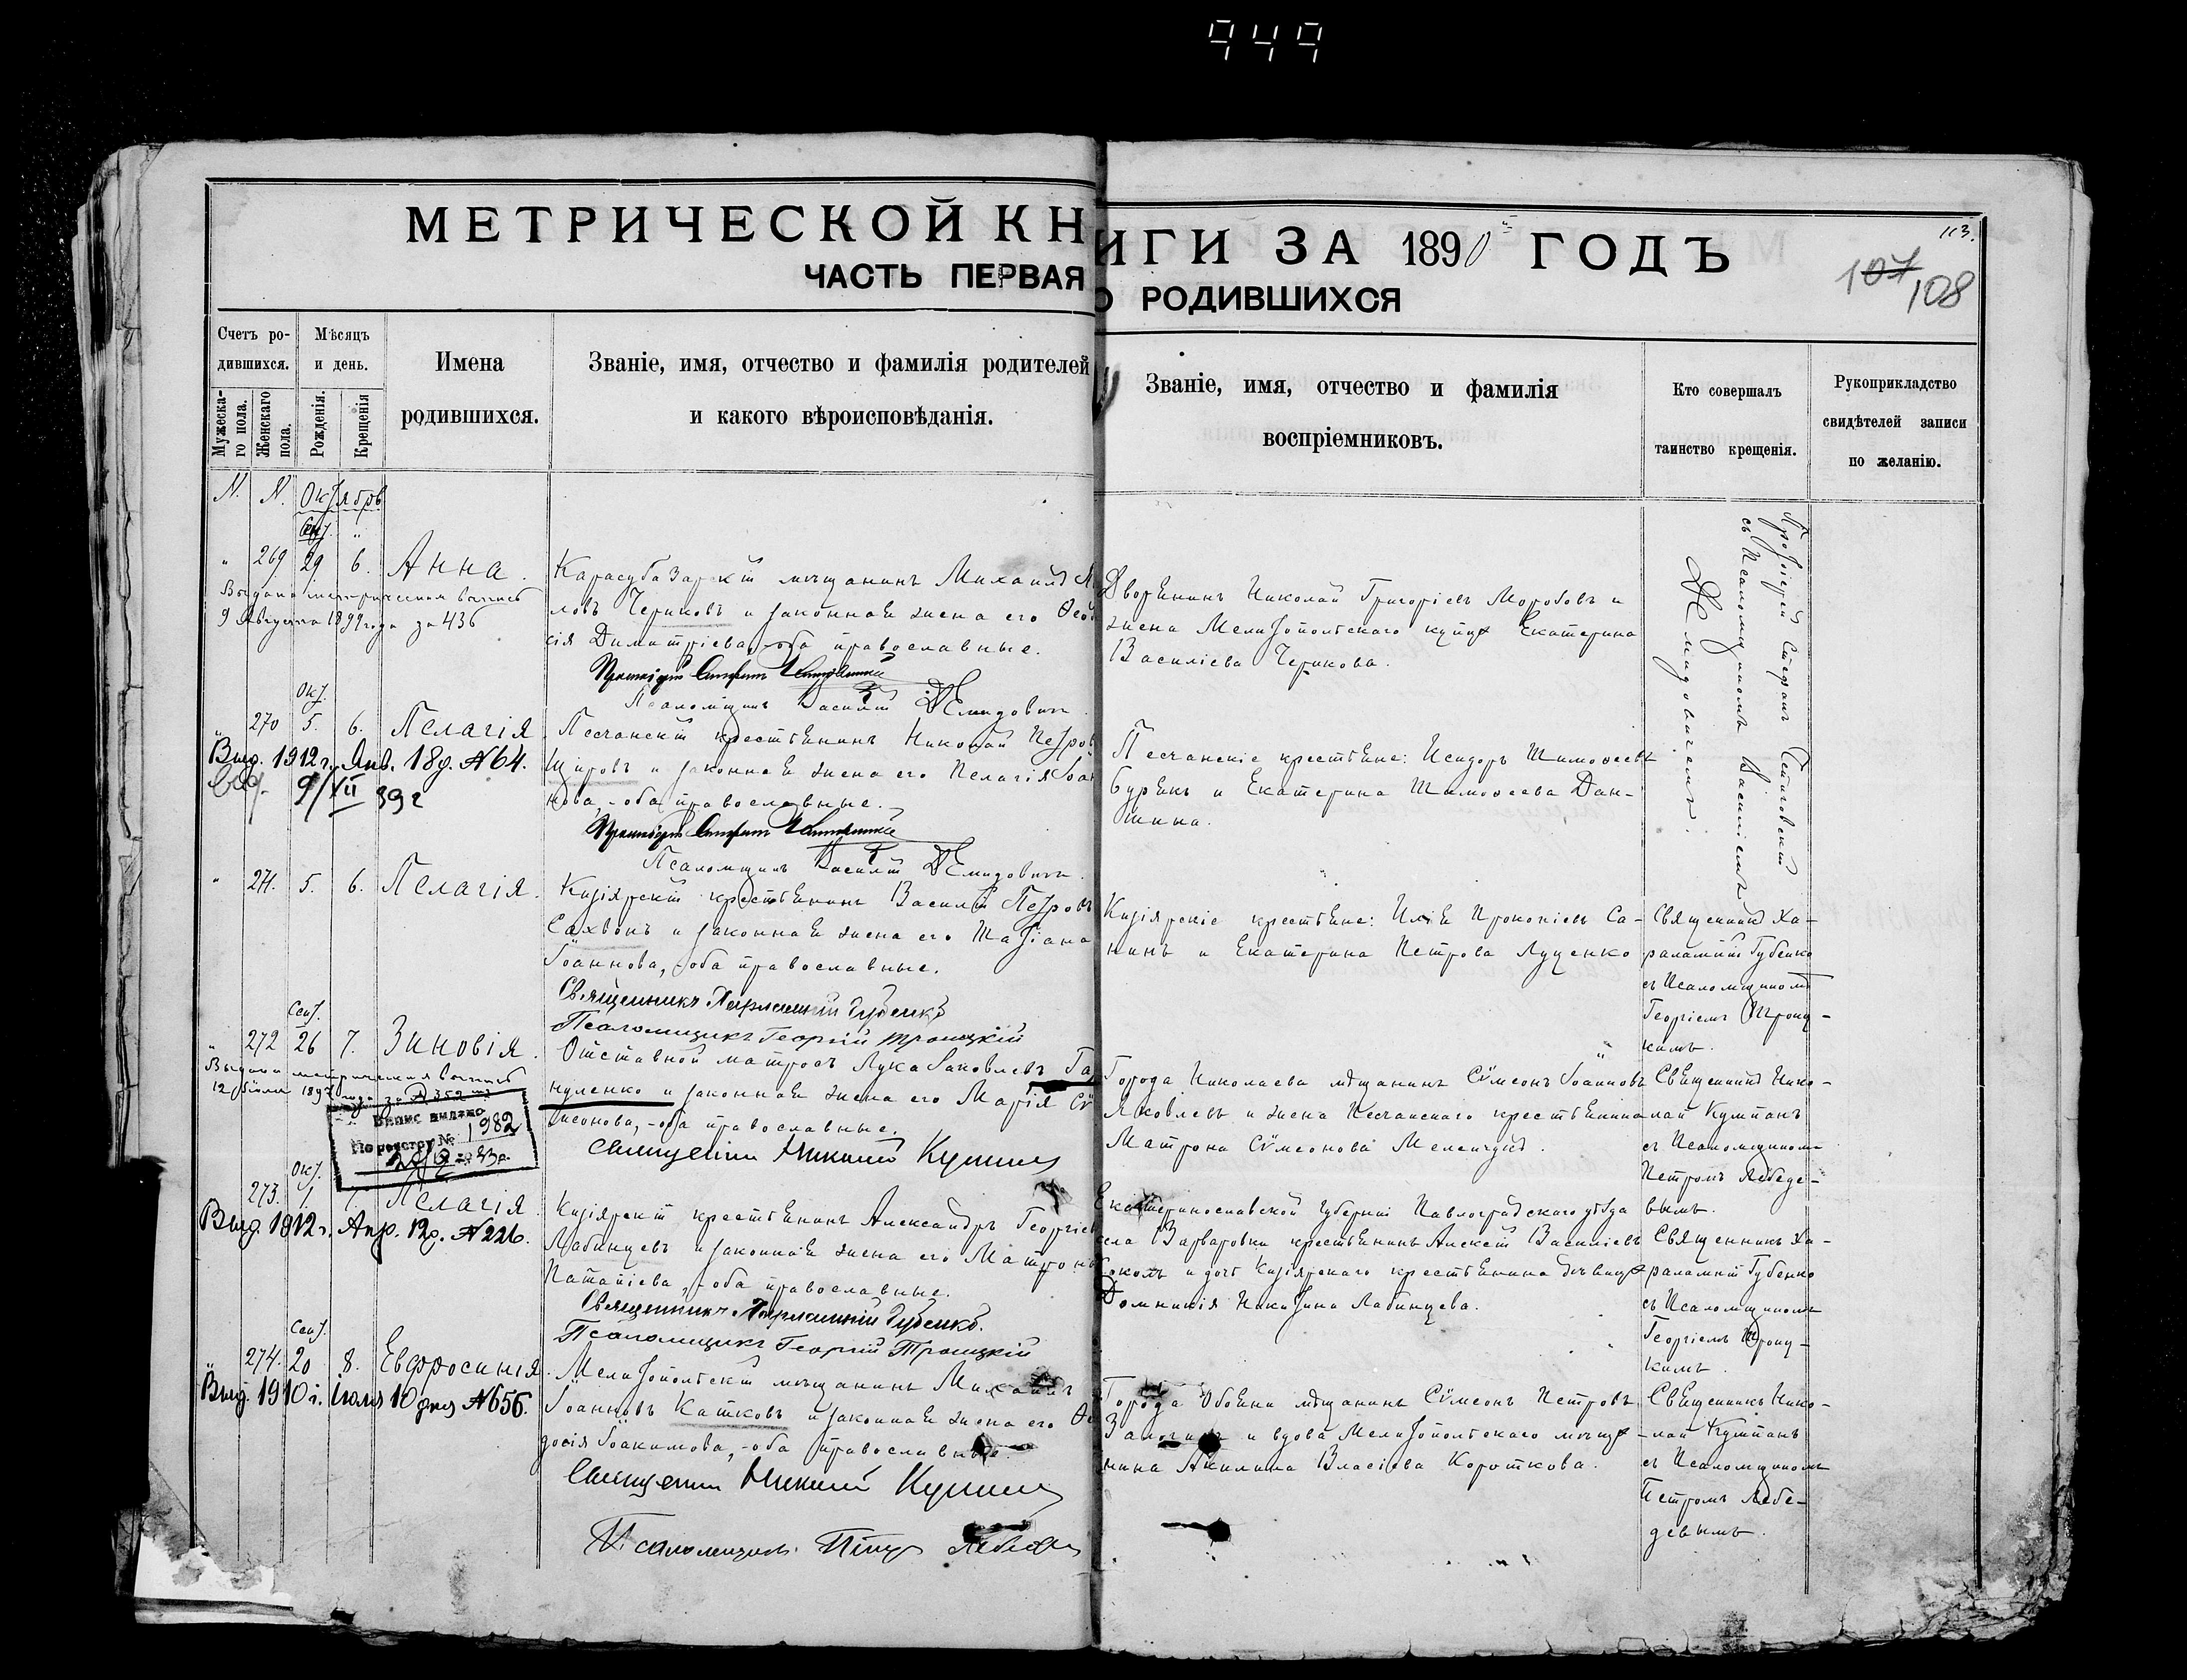 949
МЕТРИЧЕСКОЙ КНИГИ ЗА 1890 ГОДЪ
113.
107
108
ЧАСТЬ ПЕРВАЯ О РОДИВШИХСЯ
Счетъ родившихся.
Мужескаго пола.
Женскаго пола.
Мѣсяцъ и день.
Рожденія.
Крещенія
Имена родившихся.
Званіе, имя, отчество и фамилія родителей
и какого вѣроисповѣданія.
Званіе, имя, отчество и фамилія
воспріемниковъ.
Кто совершалъ
таинство крещенія.
Рукоприкладство
свидѣтелей записи
по желанію.
N. N. Октябрь
Сен.
269 29 6. Анна.
Выдана метрическая выпись
9 Августа 1899 года за 436
Карасубазарскій мѣщанинъ Михаилъ
ловъ Черновъ и законная жена его
сія Димитріева, оба православные.
Псаломщикъ Василій Демидовичъ
Дворянинъ Николай Григоріевъ Морозовъ и
жена Мелитопольскаго купца Екатерина
Василіева Чернова.
Протоіерей Стефанъ
съ Псаломщикомъ Василіемъ
Демидовичемъ.
Окт.
270 5. 6. Пелагія
Выд. 1912 г. Янв. 18 д. № 64.
9/XII 39 г
Песчанскій крестьянинъ Николай Петровъ
Щировъ и законная жена его Пелагія Іоан
нова, оба православные.
Псаломщикъ Василій Демидовичъ
Песчанскіе крестьяне: Исидоръ Тимофеевъ
Бурякъ и Екатерина Тимофеева Дан-
шина.
271. 5. 6. Пелагія.
Кизіярскій крестьянинъ Василій Петровъ
Сахвонъ и законная жена его Татіана
Іоаннова, оба православные.
Священникъ Харлампій Губенко
Псаломщикъ Георгій Троицкій
Кизіярскіе крестьяне: Илія Прокопіевъ Са-
нинъ и Екатерина Петрова Луценко
Священникъ Ха-
рлампій Губенко
съ Псаломщикомъ
Георгіемъ Троиц-
кимъ.
Сен.
272 26 7. Зиновія.
Выдана метрическая выпись
12 Іюля 1897 года за № 352
Випис видано
По реєстру № 1982
Отставной матросъ Лука Іаковлевъ Га
нуленко и законная жена его Марія Сѵ
меонова, оба православные.
Священникъ Николай Кумпанъ
Города Николаева мѣщанинъ Сѵмеонъ Іоанновъ
Яковлевъ и жена Песчанскаго крестьянина
Матрона Сѵмеонова Меленчукъ.
Священникъ Нико-
лай Кумпанъ
съ Псаломщикомъ
Петромъ Лебеде-
вымъ.
Окт.
273. 1. 7. Пелагія
Выд. 1912 г. Апр. 12 д. № 226.
Кизіярскій крестьянинъ Александръ Георгіевъ
Лабинцевъ и законная жена его Матрона
Патапіева, оба православные.
Священникъ Харлампій Губенко.
Псаломщикъ Георгій Троицкій
Екатеринославской губерніи Павлоградскаго уѣзда
села Варваровки крестьянинъ Алексій Василіевъ
Соколъ и дочь Кизіярскаго крестьянина дѣвица
Домникія Никитина Лабинцева.
Священникъ Ха-
рлампій Губенко
съ Псаломщикомъ
Георгіемъ Троиц-
кимъ.
Сен.
274. 20 8. Евфросинія.
Выд. 1910 г. Іюля 10 дня № 656.
Мелитопольскій мѣщанинъ Михаилъ
Іоанновъ Катковъ и законная жена его Ѳео
досія Іоакимова, оба православные.
Священникъ Николай Кумпанъ
Псаломщикъ Петръ Лебедевъ
Города Обояни мѣщанинъ Сѵмеонъ Петровъ
и вдова Мелитопольскаго мѣща-
нина Акилина Власіева Короткова.
Священникъ Нико-
лай Кумпанъ
съ Псаломщикомъ
Петромъ Лебе-
девымъ.